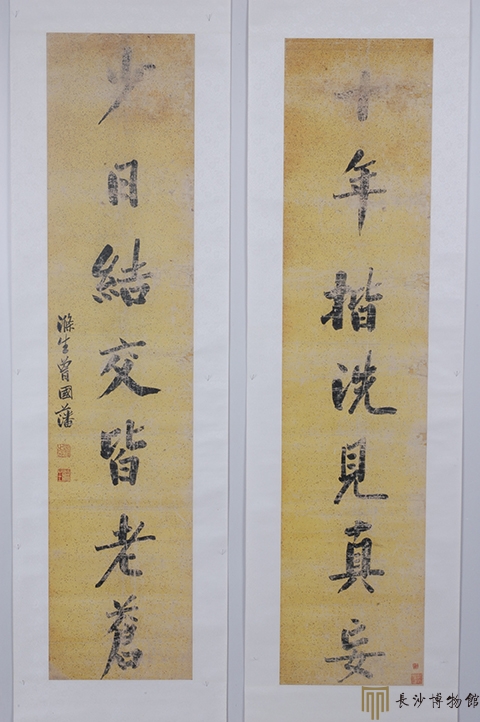 十年揩洗見真妄
少日結交皆老蒼
滌生曾國藩
長沙博物館